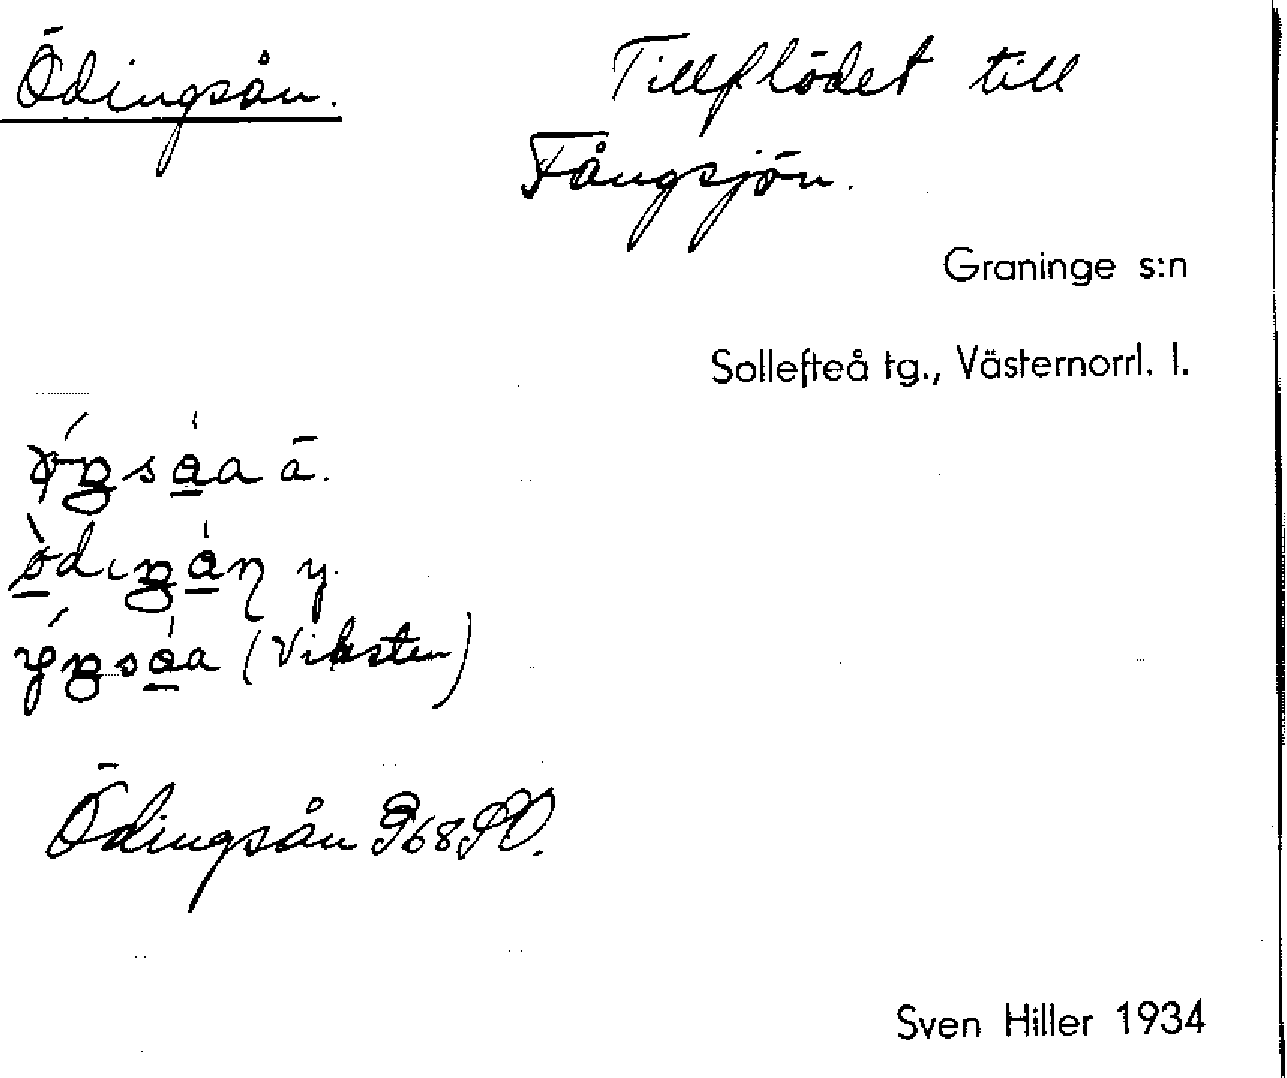 Ödingsån.
Tillflödet till
Fångsjön.
Graninge s:n
Sollefteå tg., Västernorrl. l.
ä.
y.
(Viksten)
Ödingsån
Sven Hiller 1934